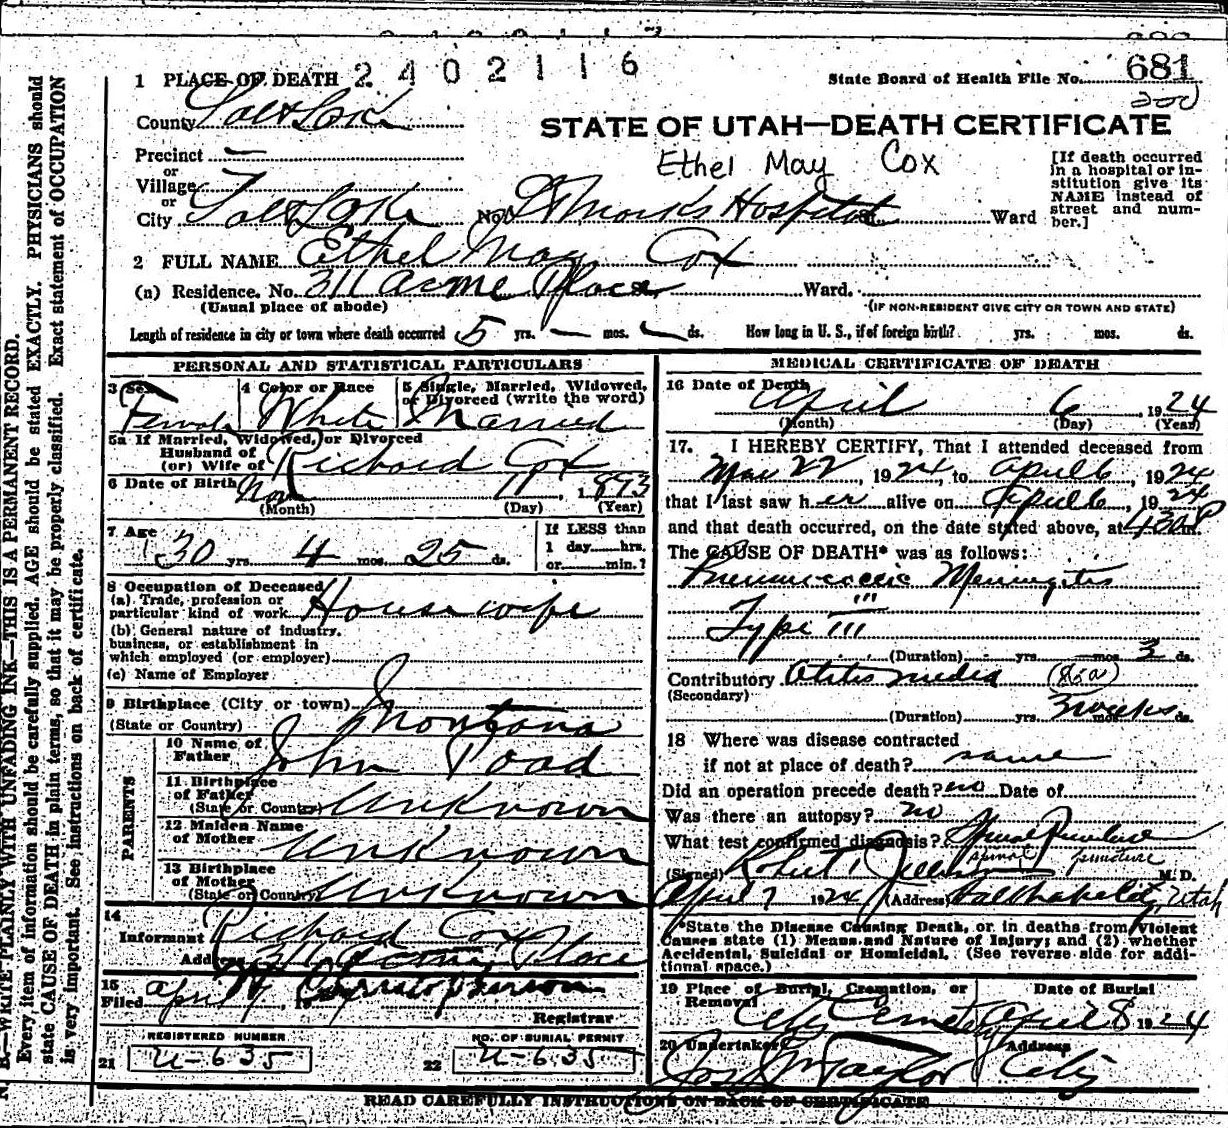 2402116
1 PLACE OF DEATH
State Board of Health File No. 681
200
County Salt Lake
STATE OF UTAH—DEATH CERTIFICATE
Precinct —
or
Village
or
Ethel May Cox
[If death occurred in a hospital or institution give its NAME instead of street and number.]
City Salt Lake No. St Marks Hospital St. Ward
2 FULL NAME Ethel May Cox
(a) Residence. No. 311 Acme Place St. Ward.
(Usual place of abode) (IF NON-RESIDENT GIVE CITY OR TOWN AND STATE)
Length of residence in city or town where death occurred 5 yrs. — mos. — ds. How long in U. S., if of foreign birth? yrs. mos. ds.
PERSONAL AND STATISTICAL PARTICULARS
3 Sex Female
4 Color or Race White
5 Single, Married, Widowed, or Divorced (write the word) Married
5a If Married, Widowed, or Divorced
Husband of
(or) Wife of Richard Cox
6 Date of Birth Nov 11, 1893
(Month) (Day) (Year)
7 Age 30 yrs. 4 mos. 25 ds.
If LESS than
1 day......hrs.
or......min.?
8 Occupation of Deceased
(a) Trade, profession or
particular kind of work Housewife
(b) General nature of industry,
business, or establishment in
which employed (or employer)
(c) Name of Employer
9 Birthplace (City or town)
(State or Country) Montana
PARENTS
10 Name of
Father John Poad
11 Birthplace
of Father
(State or Country) Unknown
12 Maiden Name
of Mother Unknown
13 Birthplace
of Mother
(State or Country) Unknown
14
Informant Richard Cox
Address 311 Acme Place
15
Filed April
Registrar
REGISTERED NUMBER
21 U-635
NO. OF BURIAL PERMIT
22 U-635
MEDICAL CERTIFICATE OF DEATH
16 Date of Death
April 6, 1924
(Month) (Day) (Year)
17. I HEREBY CERTIFY, That I attended deceased from
Mar 22, 1924, to April 6, 1924
that I last saw her alive on April 6, 1924
and that death occurred, on the date stated above, at 430 P m.
The CAUSE OF DEATH* was as follows:
Pneumococcic Meningitis
Type III
(Duration) yrs. mos. 3 ds.
Contributory Otitis media
(Secondary)
(Duration) yrs. 3 weeks mos. ds.
18 Where was disease contracted
if not at place of death? same
Did an operation precede death? no Date of
Was there an autopsy? no
What test confirmed diagnosis? Spinal Puncture
spinal puncture
(Signed) Robert M. D.
April 7 1924 (Address) Salt Lake City, Utah
*State the Disease Causing Death, or in deaths from Violent
Causes state (1) Means and Nature of Injury; and (2) whether
Accidental, Suicidal or Homicidal. (See reverse side for addi-
tional space.)
19 Place of Burial, Cremation, or
Removal
Date of Burial
City Cemetery April 8 1924
20 Undertaker Address
Jos Wm Taylor City
READ CAREFULLY INSTRUCTIONS ON BACK OF CERTIFICATE
N. B.—WRITE PLAINLY WITH UNFADING INK—THIS IS A PERMANENT RECORD.
Every item of information should be carefully supplied. AGE should be stated EXACTLY. PHYSICIANS should
state CAUSE OF DEATH in plain terms, so that it may be properly classified. Exact statement of OCCUPATION
is very important. See instructions on back of certificate.